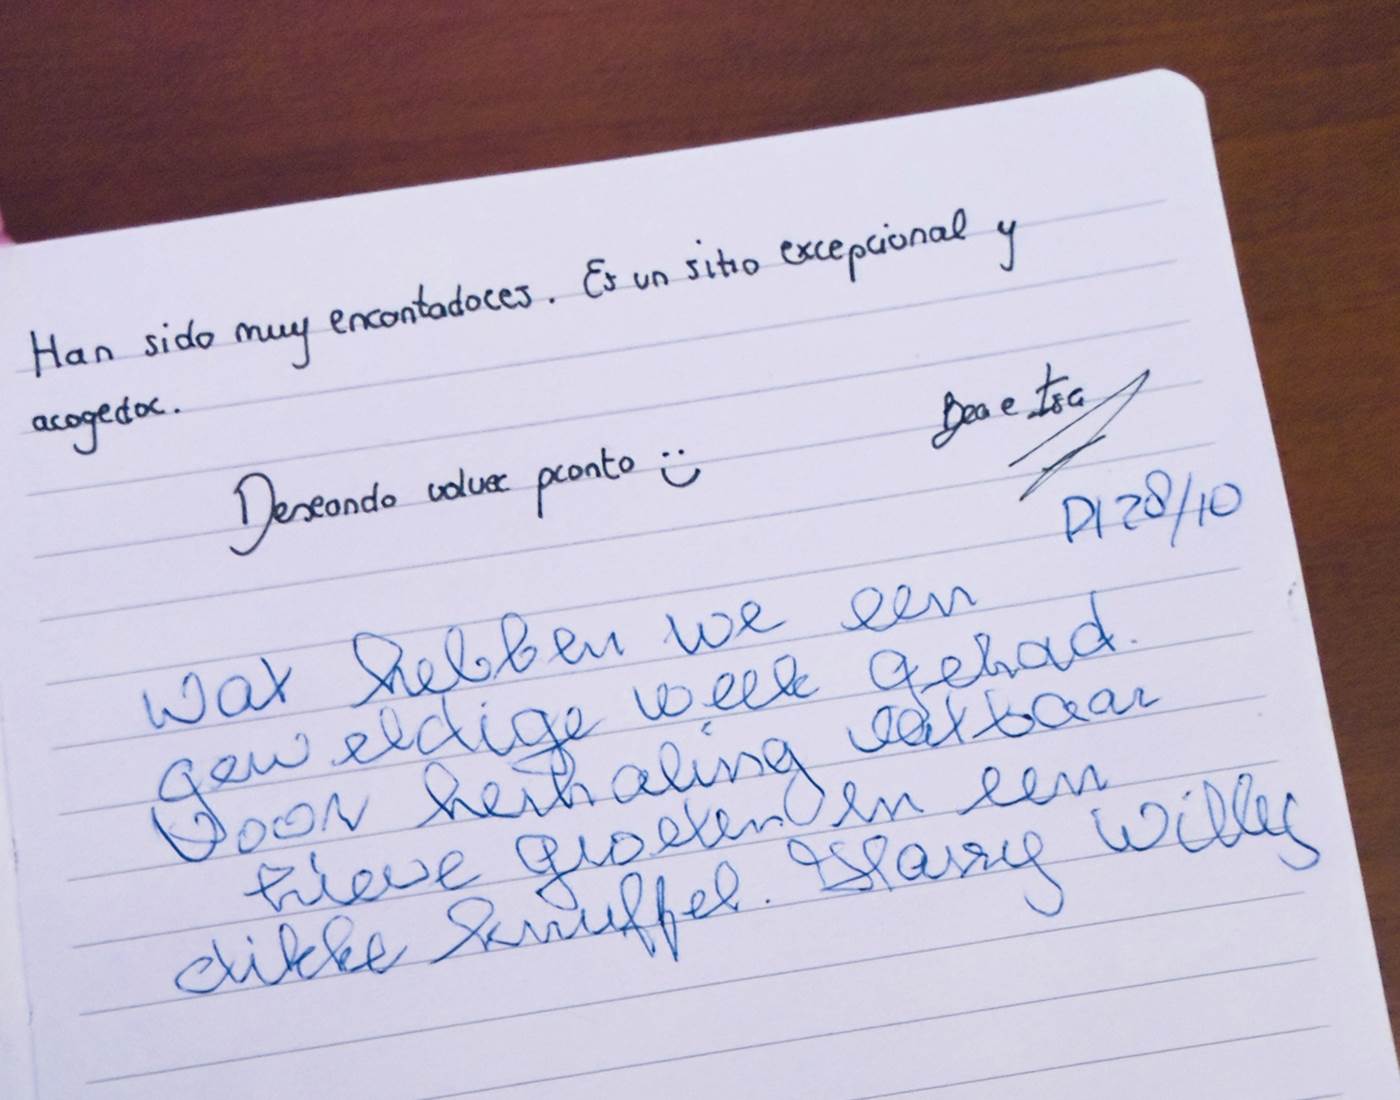 Han sido muy encantadores. Es un sitio excepcional y
acogedor.
Bea e Isa
Deseando volver pronto :)
DI 28/10
Wat hebben we een
geweldige week gehad.
Voor herhaling vatbaar
Lieve groeten en een
dikke knuffel. Harry Willy